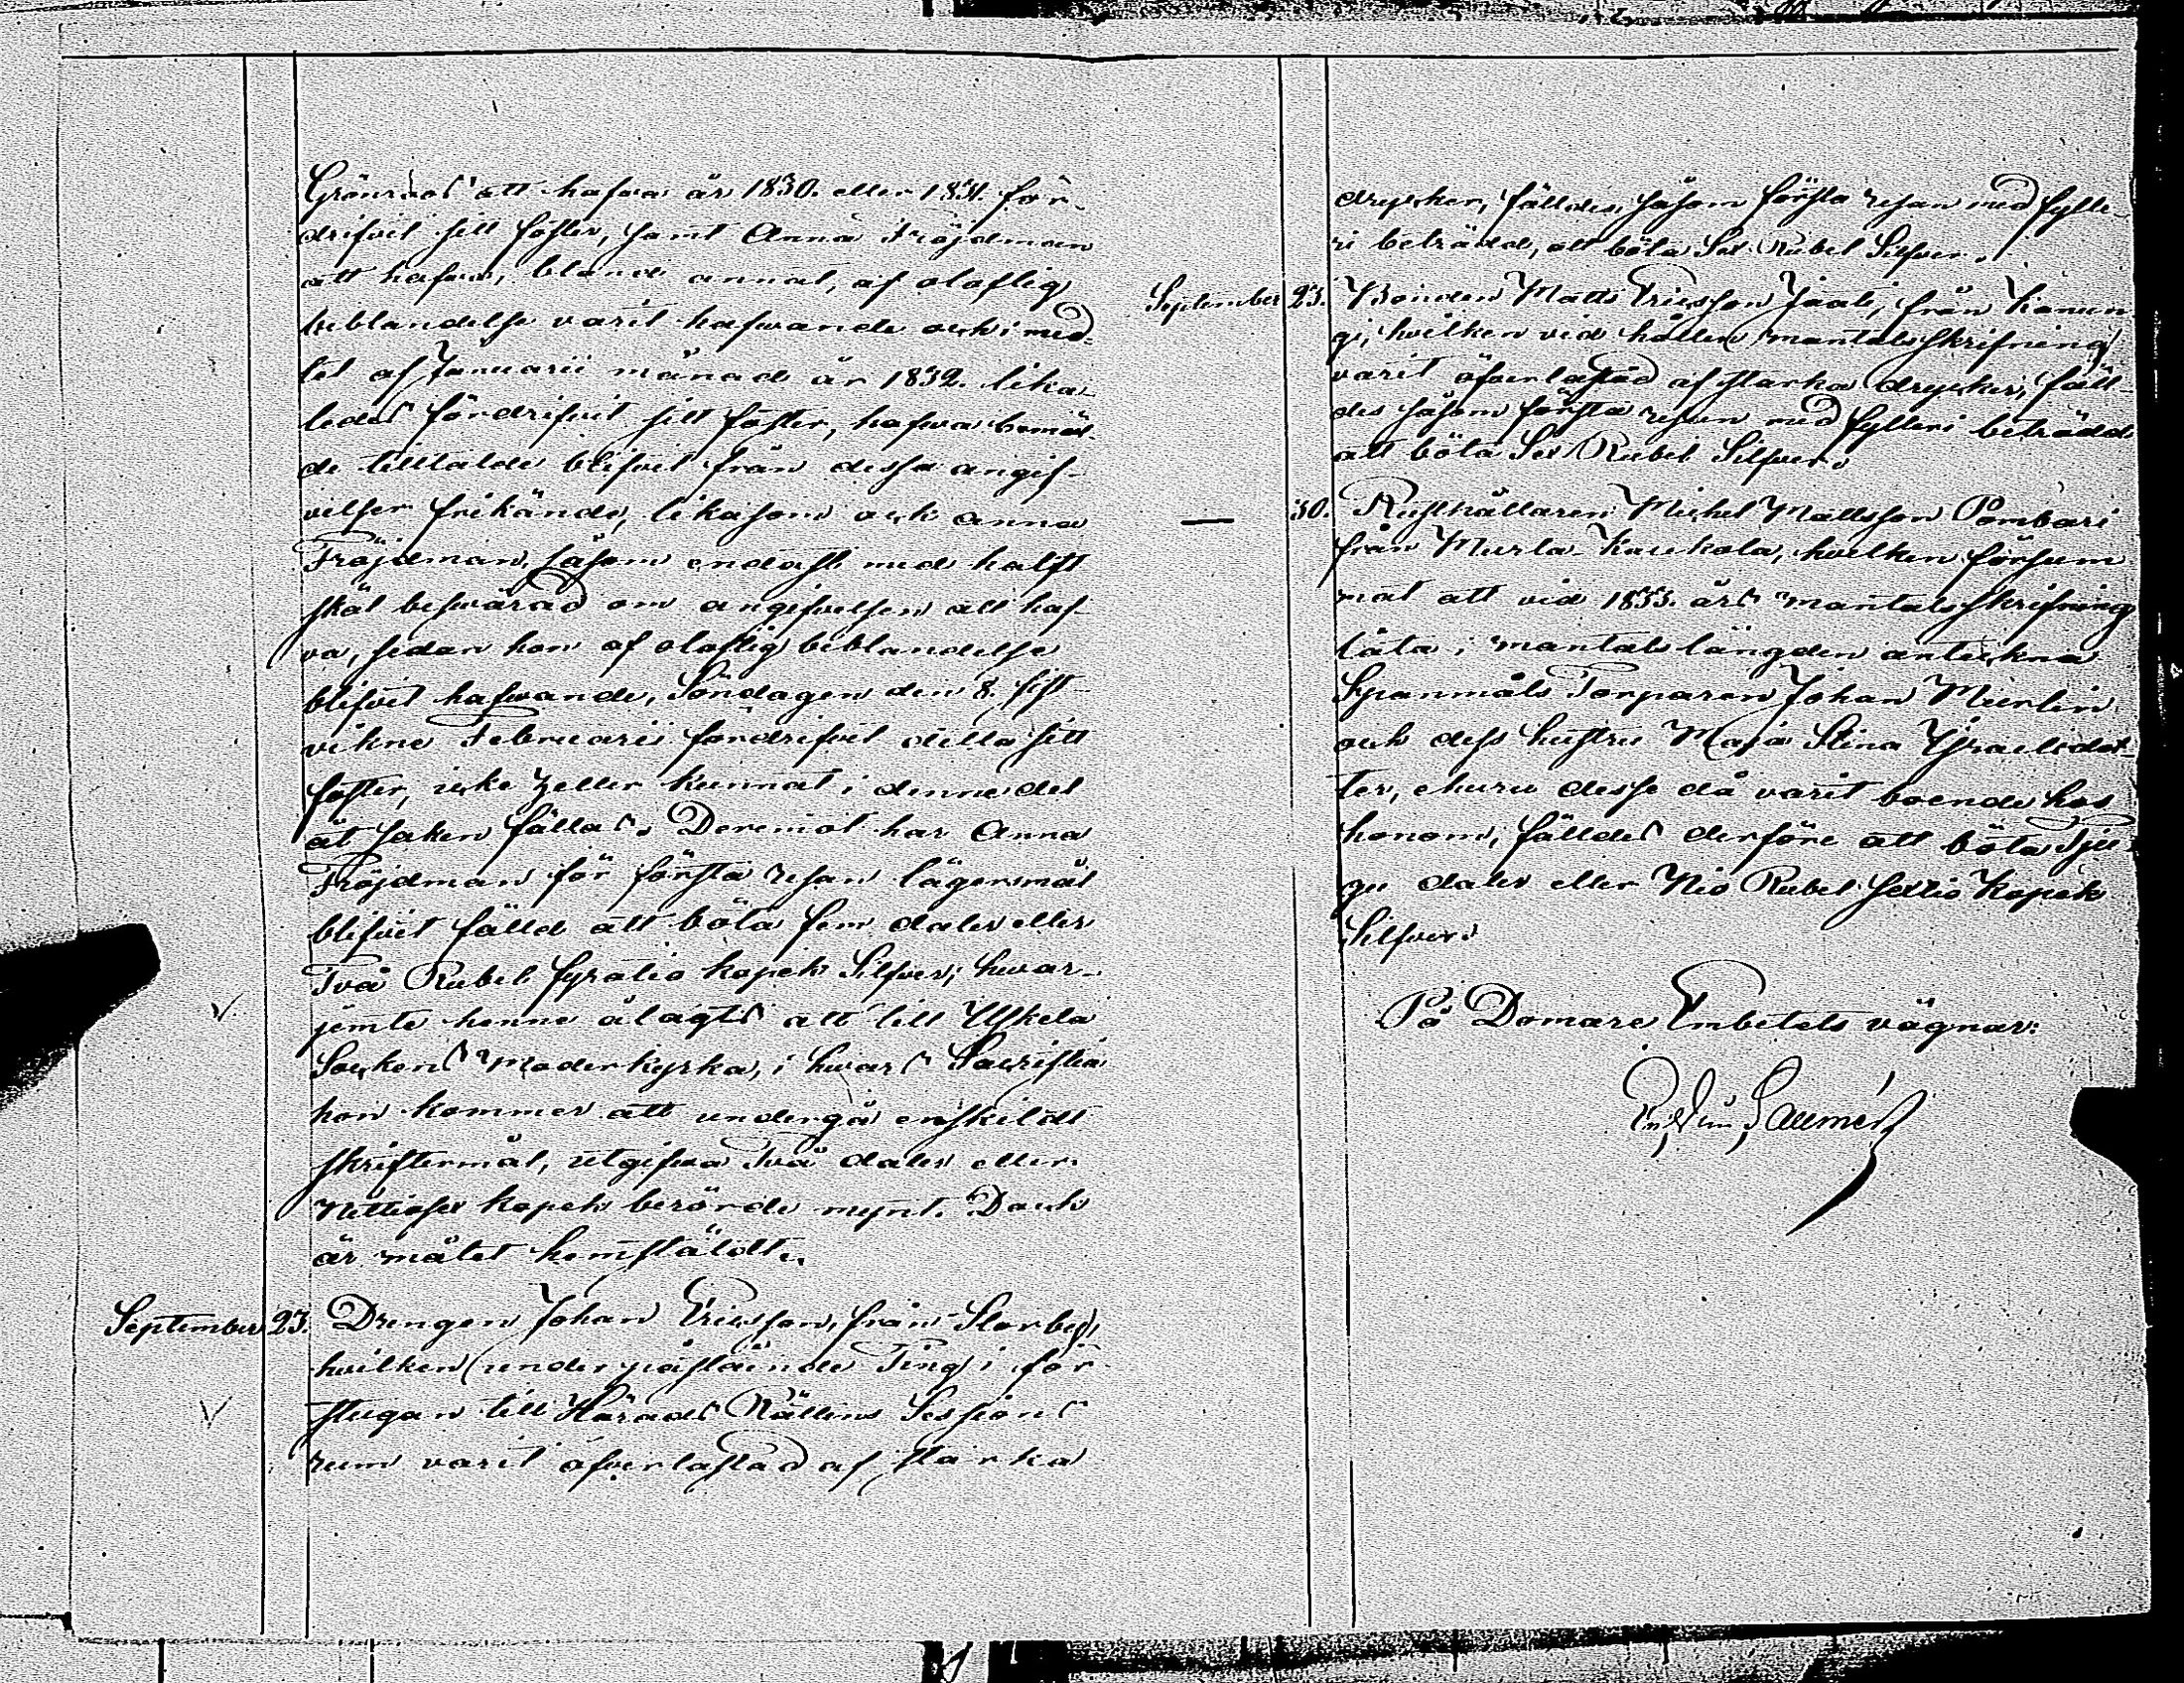 Grönroos att hafva år 1830. eller 1831. för-
drifvit sitt foster, samt Anna Fröjdman
att hafva, bland annat, af olaflig
beblandelse varit hafwande och i med-
let af Januarii månad år 1832. lika-
ledes fördrifvit sitt foster, hafva bemäl-
de tilltalde blifvit från dessa angif-
velser frikände, likasom och Anna
Fröjdman, såsom endast med halft
skäl beswärad om angifvelsen att haf-
va, sedan hon af olaflig beblandelse
blifvit hafwande, Söndagen den 8. sist-
vikne Februarii fördrifvit detta sitt
foster, icke heller kunnat i denne del
åt saken fällas. Deremot har Anna
Fröjdman för första resan lägersmål
blifvit fälld att böta fem daler eller
Två Rubel fyratio kopek Silfver; hwar-
jemte henne ålagts att till Uskela
Sockens Moderkyrka, i hwars Sacristia
hon kommer att undergå enskildt
skriftermål, utgifwa Två daler eller
Nittiosex kopek berörde mynt. Dock
är målet hemstäldt.
September 23. Drengen Johan Ericsson, från Storby,
hvilken under påstående Ting i för-
stugan till Härads Rättens Sessions
rum varit öfverlastad af starka
drycker, fälldes, såsom första resan med fylle-
ri beträdd, att böta Sex Rubel Silfver.
September 23. Bonden Matts Ericsson Jaali, från Kanun-
gi, hvilken vid hållen mantalsskrifning
varit öfverlastad af starka drycker, fäll-
des såsom första resan med fylleri beträdd
att böta Sex Rubel Silfver.
— 30. Rusthållaren Michel Mattsson Pambari
från Murla Kaukola, hvilken försum-
mat att vid 1833. års mantalsskrifning
låta i mantalslängden anteckna
Spanmåls Torparen Johan Murlin
och dess hustru Maja Stina Israelsdot-
ter, ehuru desse då varit boende hos
honom, fälldes derföre att böta Tju-
gu daler eller Nio Rubel sextio Kopek
Silfver.
På Domare Embetets vägnar: